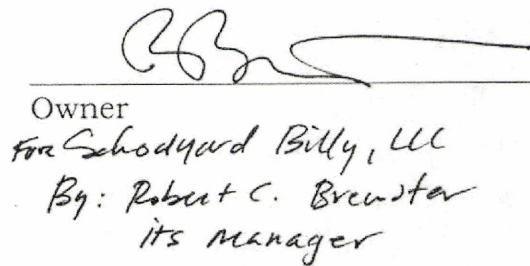 Owner
For Schoolyard Billy, LLC
By: Robert C. Brewster
its manager